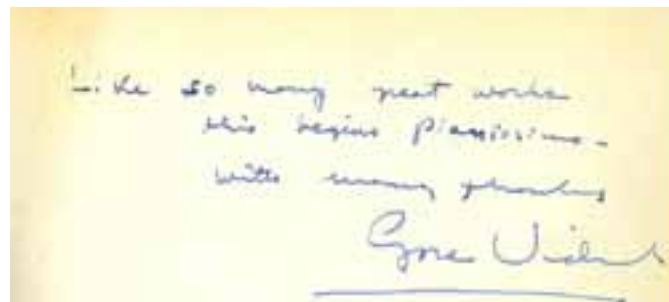 Like so many great works
this begins pianissimo -
with many thanks
Gore Vidal